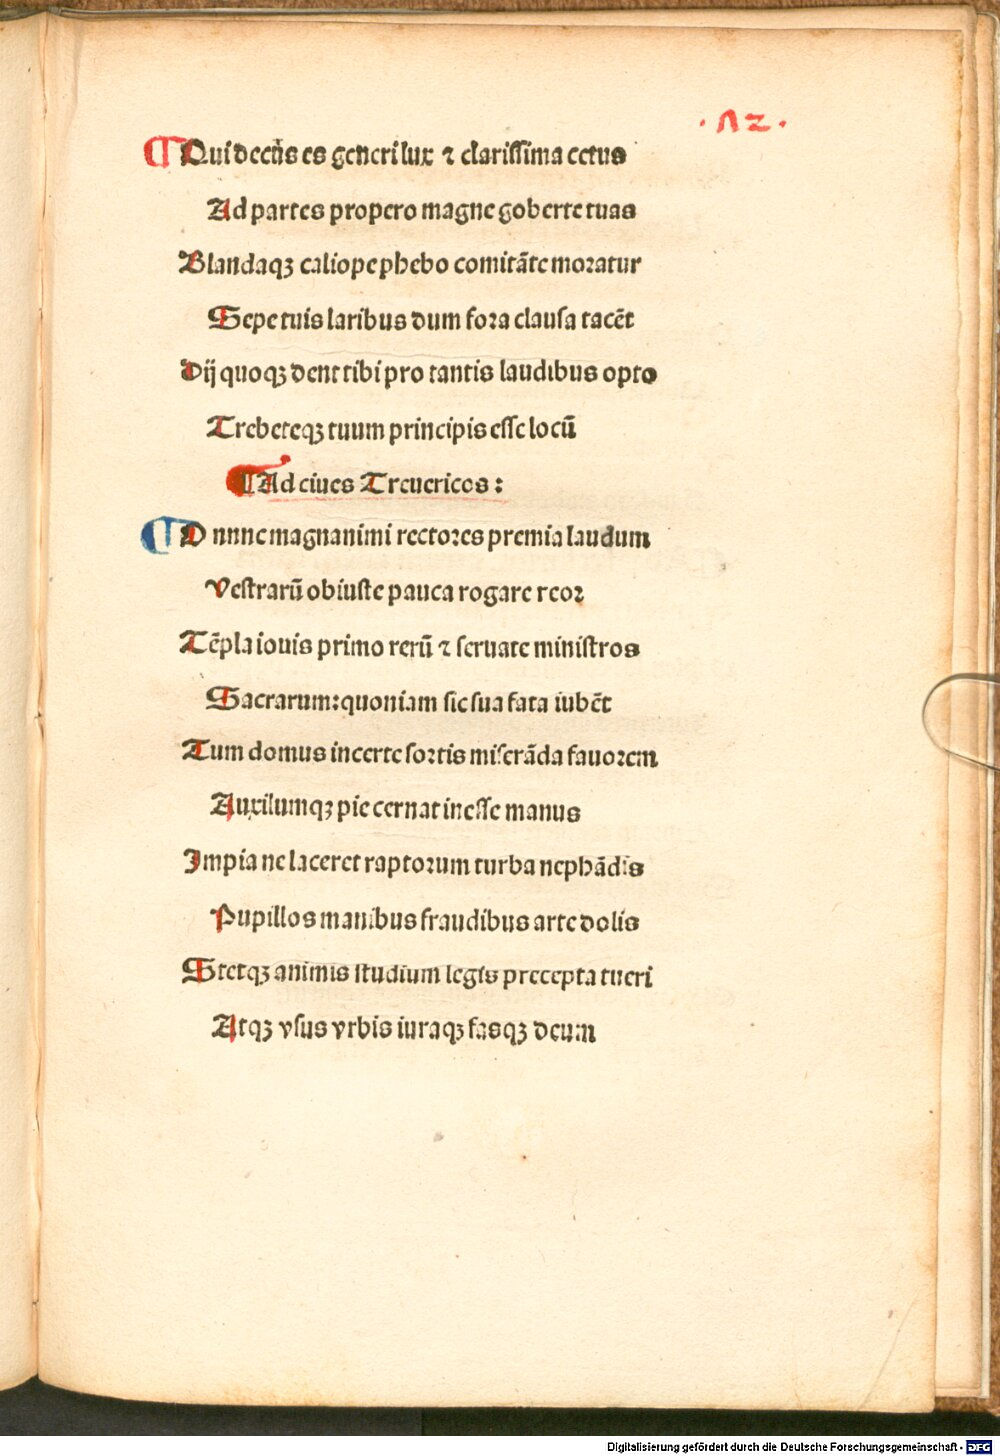 ·Λ2·
¶ Qui decus es generi lux ⁊ clarissima cetus
Ad partes propero magne goberte tuas
Blandaqꝫ caliope phebo comitāte moratur
Sepe tuis laribus dum fora clausa tacēt
Dij quoqꝫ dent tibi pro tantis laudibus opto
Trebereqꝫ tuum principis esse locū
¶ Ad ciues Treuericos:
¶ O nunc magnanimi rectores premia laudum
Vestrarū ob iuste pauca rogare reor
Tēpla iouis primo rerū ⁊ seruate ministros
Sacrarum: quoniam sic sua fata iubēt
Tum domus incerte sortis miserāda fauorem
Auxilumqꝫ pie cernat inesse manus
Impia ne laceret raptorum turba nephādis
Pupillos manibus fraudibus arte dolis
Stetqꝫ animis studium legis precepta tueri
Atqꝫ vsus vrbis iuraqꝫ fasqꝫ deum
Digitalisierung gefördert durch die Deutsche Forschungsgemeinschaft - DFG